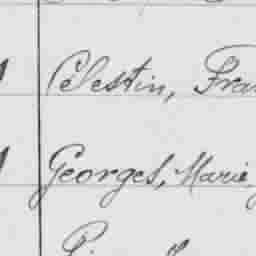 Célestin, Fra
Georges, Marie,